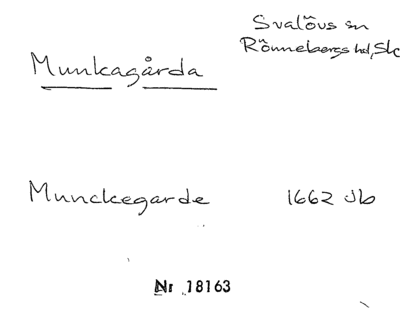 Svalövs sn
Rönnebergs hd, Skc
Munkagårda
Munckegarde 1662 Jb
Nr 18163